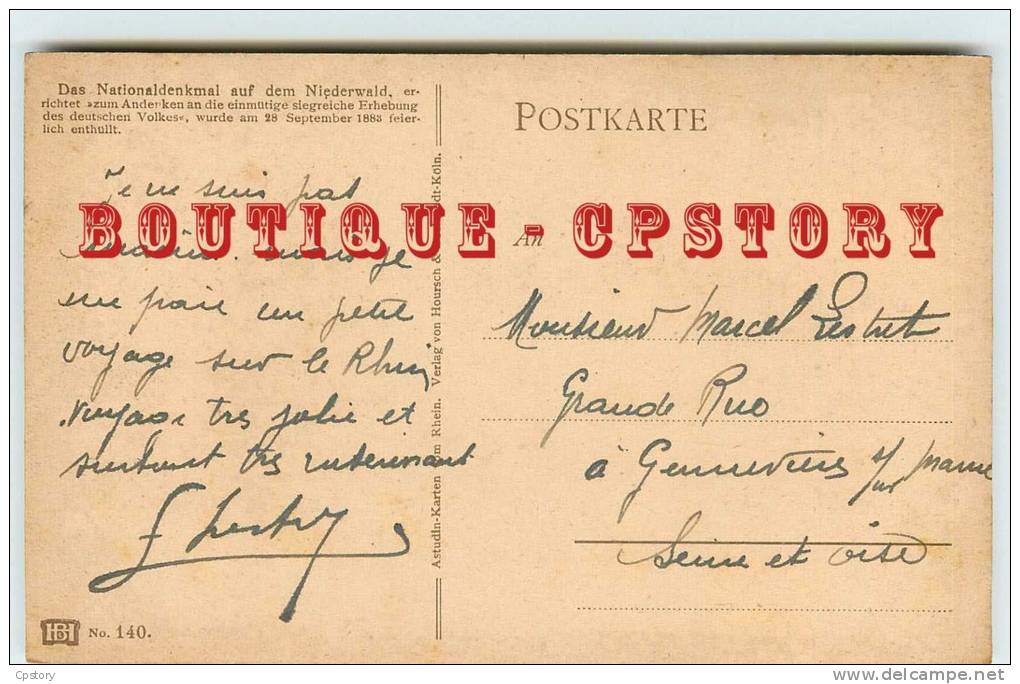 Das Nationaldenkmal auf dem Niederwald, er-
richtet »zum Andenken an die einmütige siegreiche Erhebung
des deutschen Volkes«, wurde am 28 September 1883 feier-
lich enthüllt.
POSTKARTE
Je ne suis pas
BOUTIQUE - CPSTORY
An
marin. mais je
me paie un petit
voyage sur le Rhin
voyage tres jolie et
surtout tres interessant
Monsieur Marcel
Grande Rue
à Gennevières s/ marne
sur
Seine et oise
Astudin-Karten vom Rhein. Verlag von Hoursch & dt-Köln.
HB No. 140.
Cpstory
delcampe.net